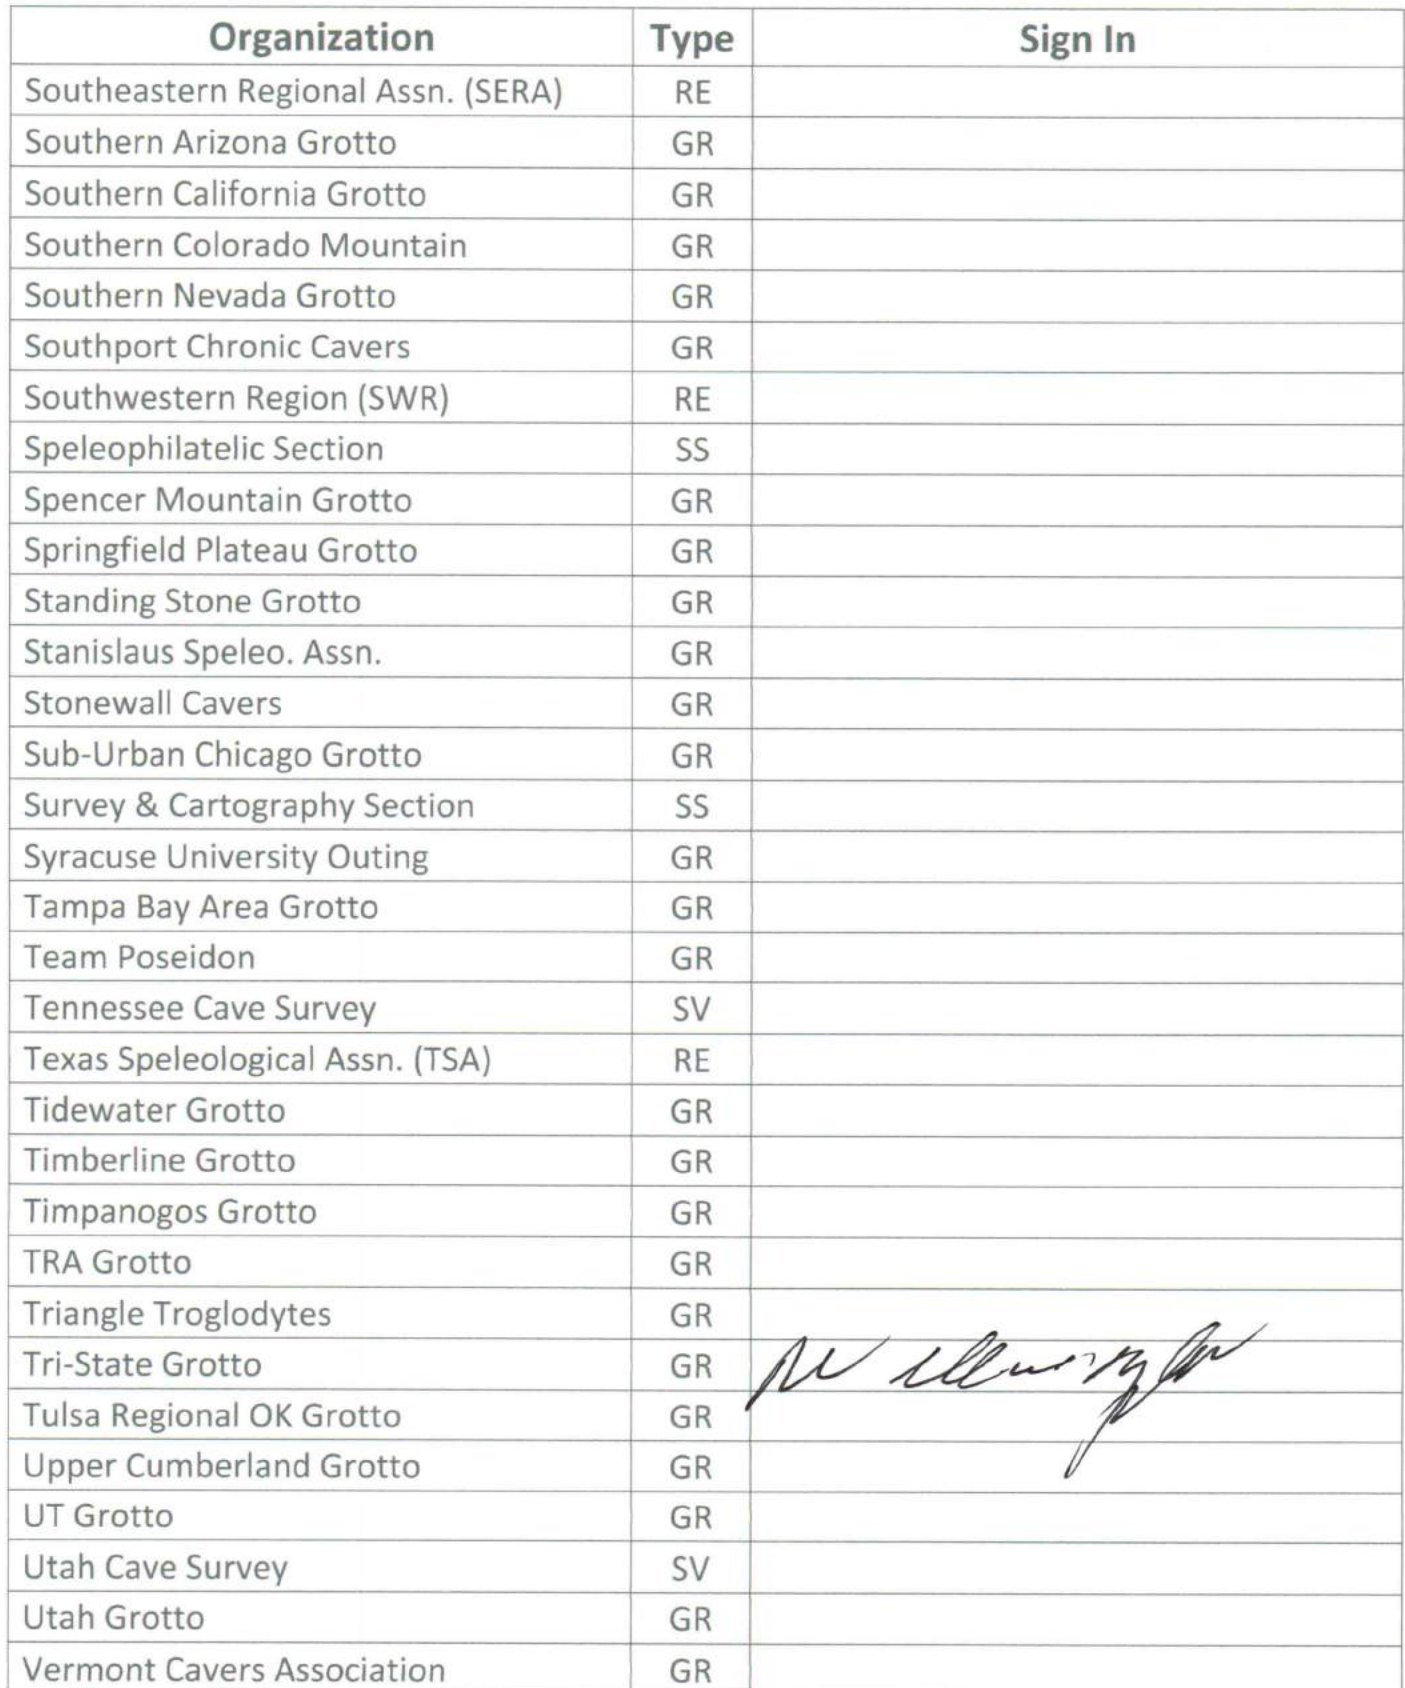 Organization Type Sign In
Southeastern Regional Assn. (SERA) RE
Southern Arizona Grotto GR
Southern California Grotto GR
Southern Colorado Mountain GR
Southern Nevada Grotto GR
Southport Chronic Cavers GR
Southwestern Region (SWR) RE
Speleophilatelic Section SS
Spencer Mountain Grotto GR
Springfield Plateau Grotto GR
Standing Stone Grotto GR
Stanislaus Speleo. Assn. GR
Stonewall Cavers GR
Sub-Urban Chicago Grotto GR
Survey & Cartography Section SS
Syracuse University Outing GR
Tampa Bay Area Grotto GR
Team Poseidon GR
Tennessee Cave Survey SV
Texas Speleological Assn. (TSA) RE
Tidewater Grotto GR
Timberline Grotto GR
Timpanogos Grotto GR
TRA Grotto GR
Triangle Troglodytes GR
Tri-State Grotto GR
Tulsa Regional OK Grotto GR
Upper Cumberland Grotto GR
UT Grotto GR
Utah Cave Survey SV
Utah Grotto GR
Vermont Cavers Association GR